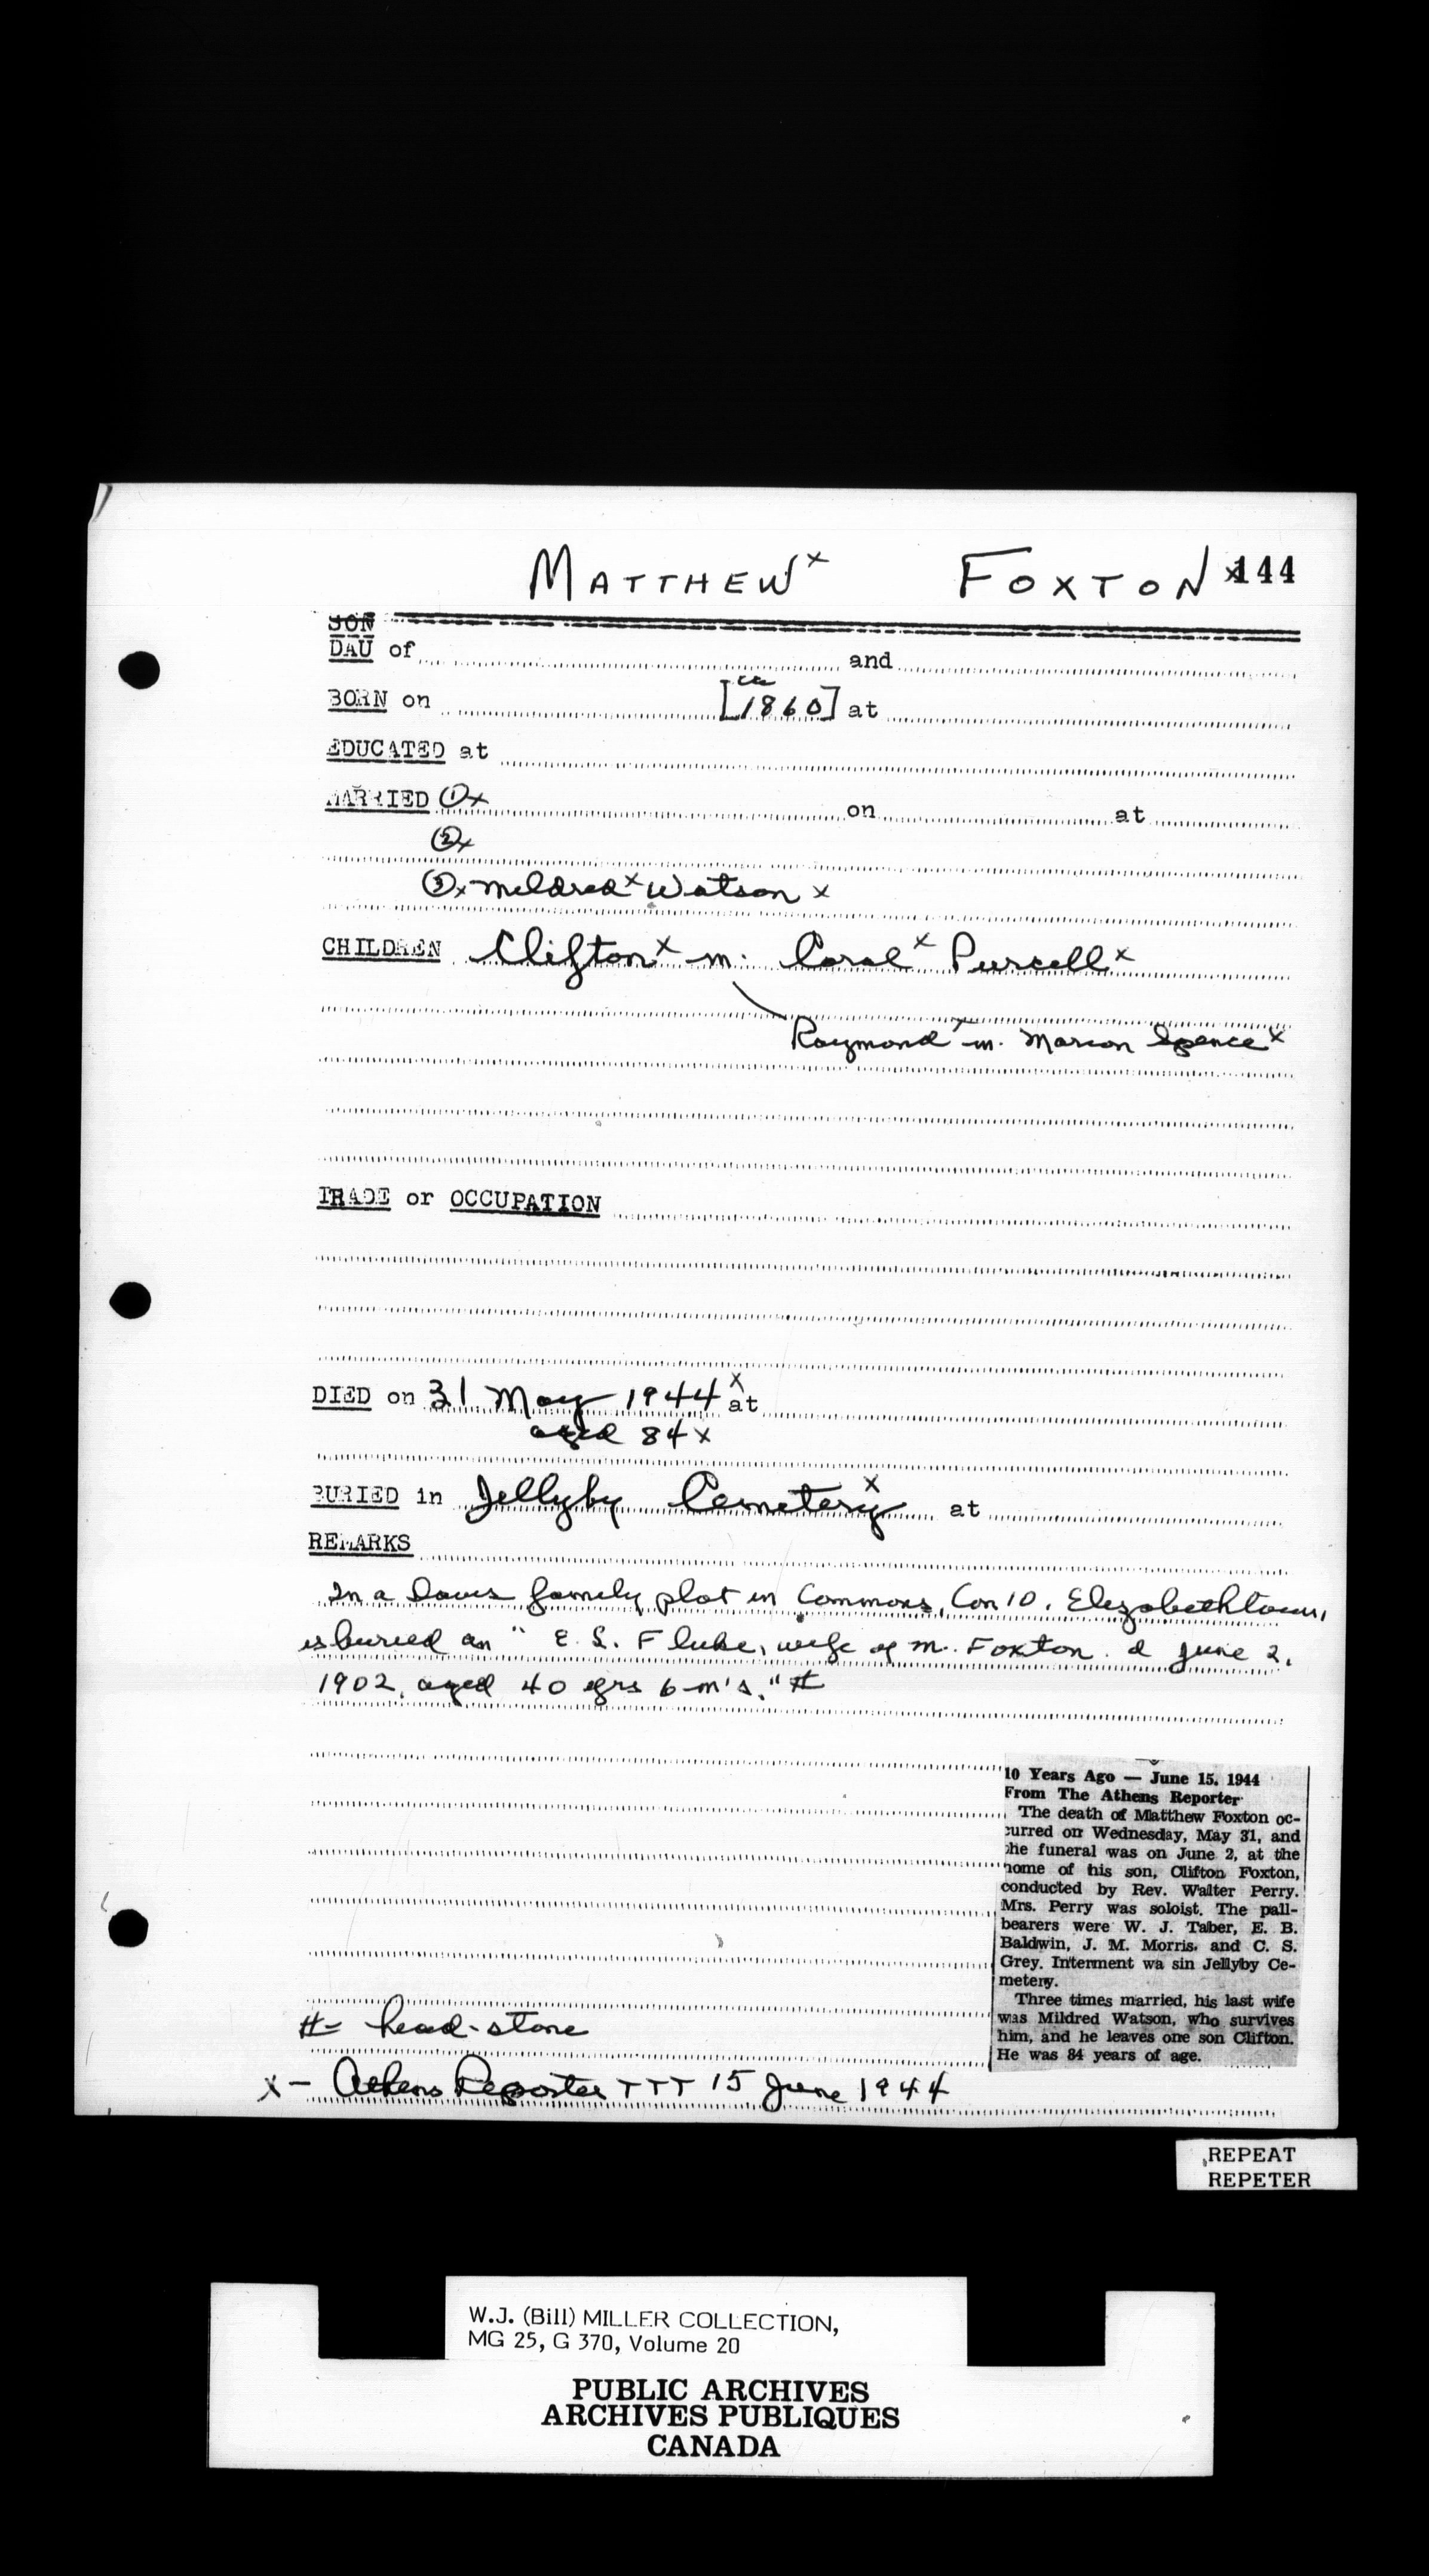 MATTHEW x FOXTON x 144
SON
DAU of and
BORN on [ca 1860] at
EDUCATED at
MARRIED ① x on at
② x
③ x Mildred x Watson x
CHILDREN Clifton x m. Coral x Purcell x
Raymond x m. Marion Spence x
TRADE or OCCUPATION
DIED on 31 May 1944 x at
aged 84 x
BURIED in Jellyby Cemetery x at
REMARKS
In a Davis family plot in Commons, Con 10, Elizabethtown,
is buried an " E. S. Fluke, wife of M. Foxton. d June 2,
1902, aged 40 yrs 6 m's." #
10 Years Ago — June 15, 1944
From The Athens Reporter
The death of Matthew Foxton oc-
curred on Wednesday, May 31, and
the funeral was on June 2, at the
home of his son, Clifton Foxton,
conducted by Rev. Walter Perry.
Mrs. Perry was soloist. The pall-
bearers were W. J. Taber, E. B.
Baldwin, J. M. Morris and C. S.
Grey. Interment wa sin Jellyby Ce-
metery.
Three times married, his last wife
was Mildred Watson, who survives
him, and he leaves one son Clifton.
He was 84 years of age.
# = head-stone
x – Athens Reporter TTT 15 June 1944
REPEAT
REPETER
W.J. (Bill) MILLER COLLECTION,
MG 25, G 370, Volume 20
PUBLIC ARCHIVES
ARCHIVES PUBLIQUES
CANADA